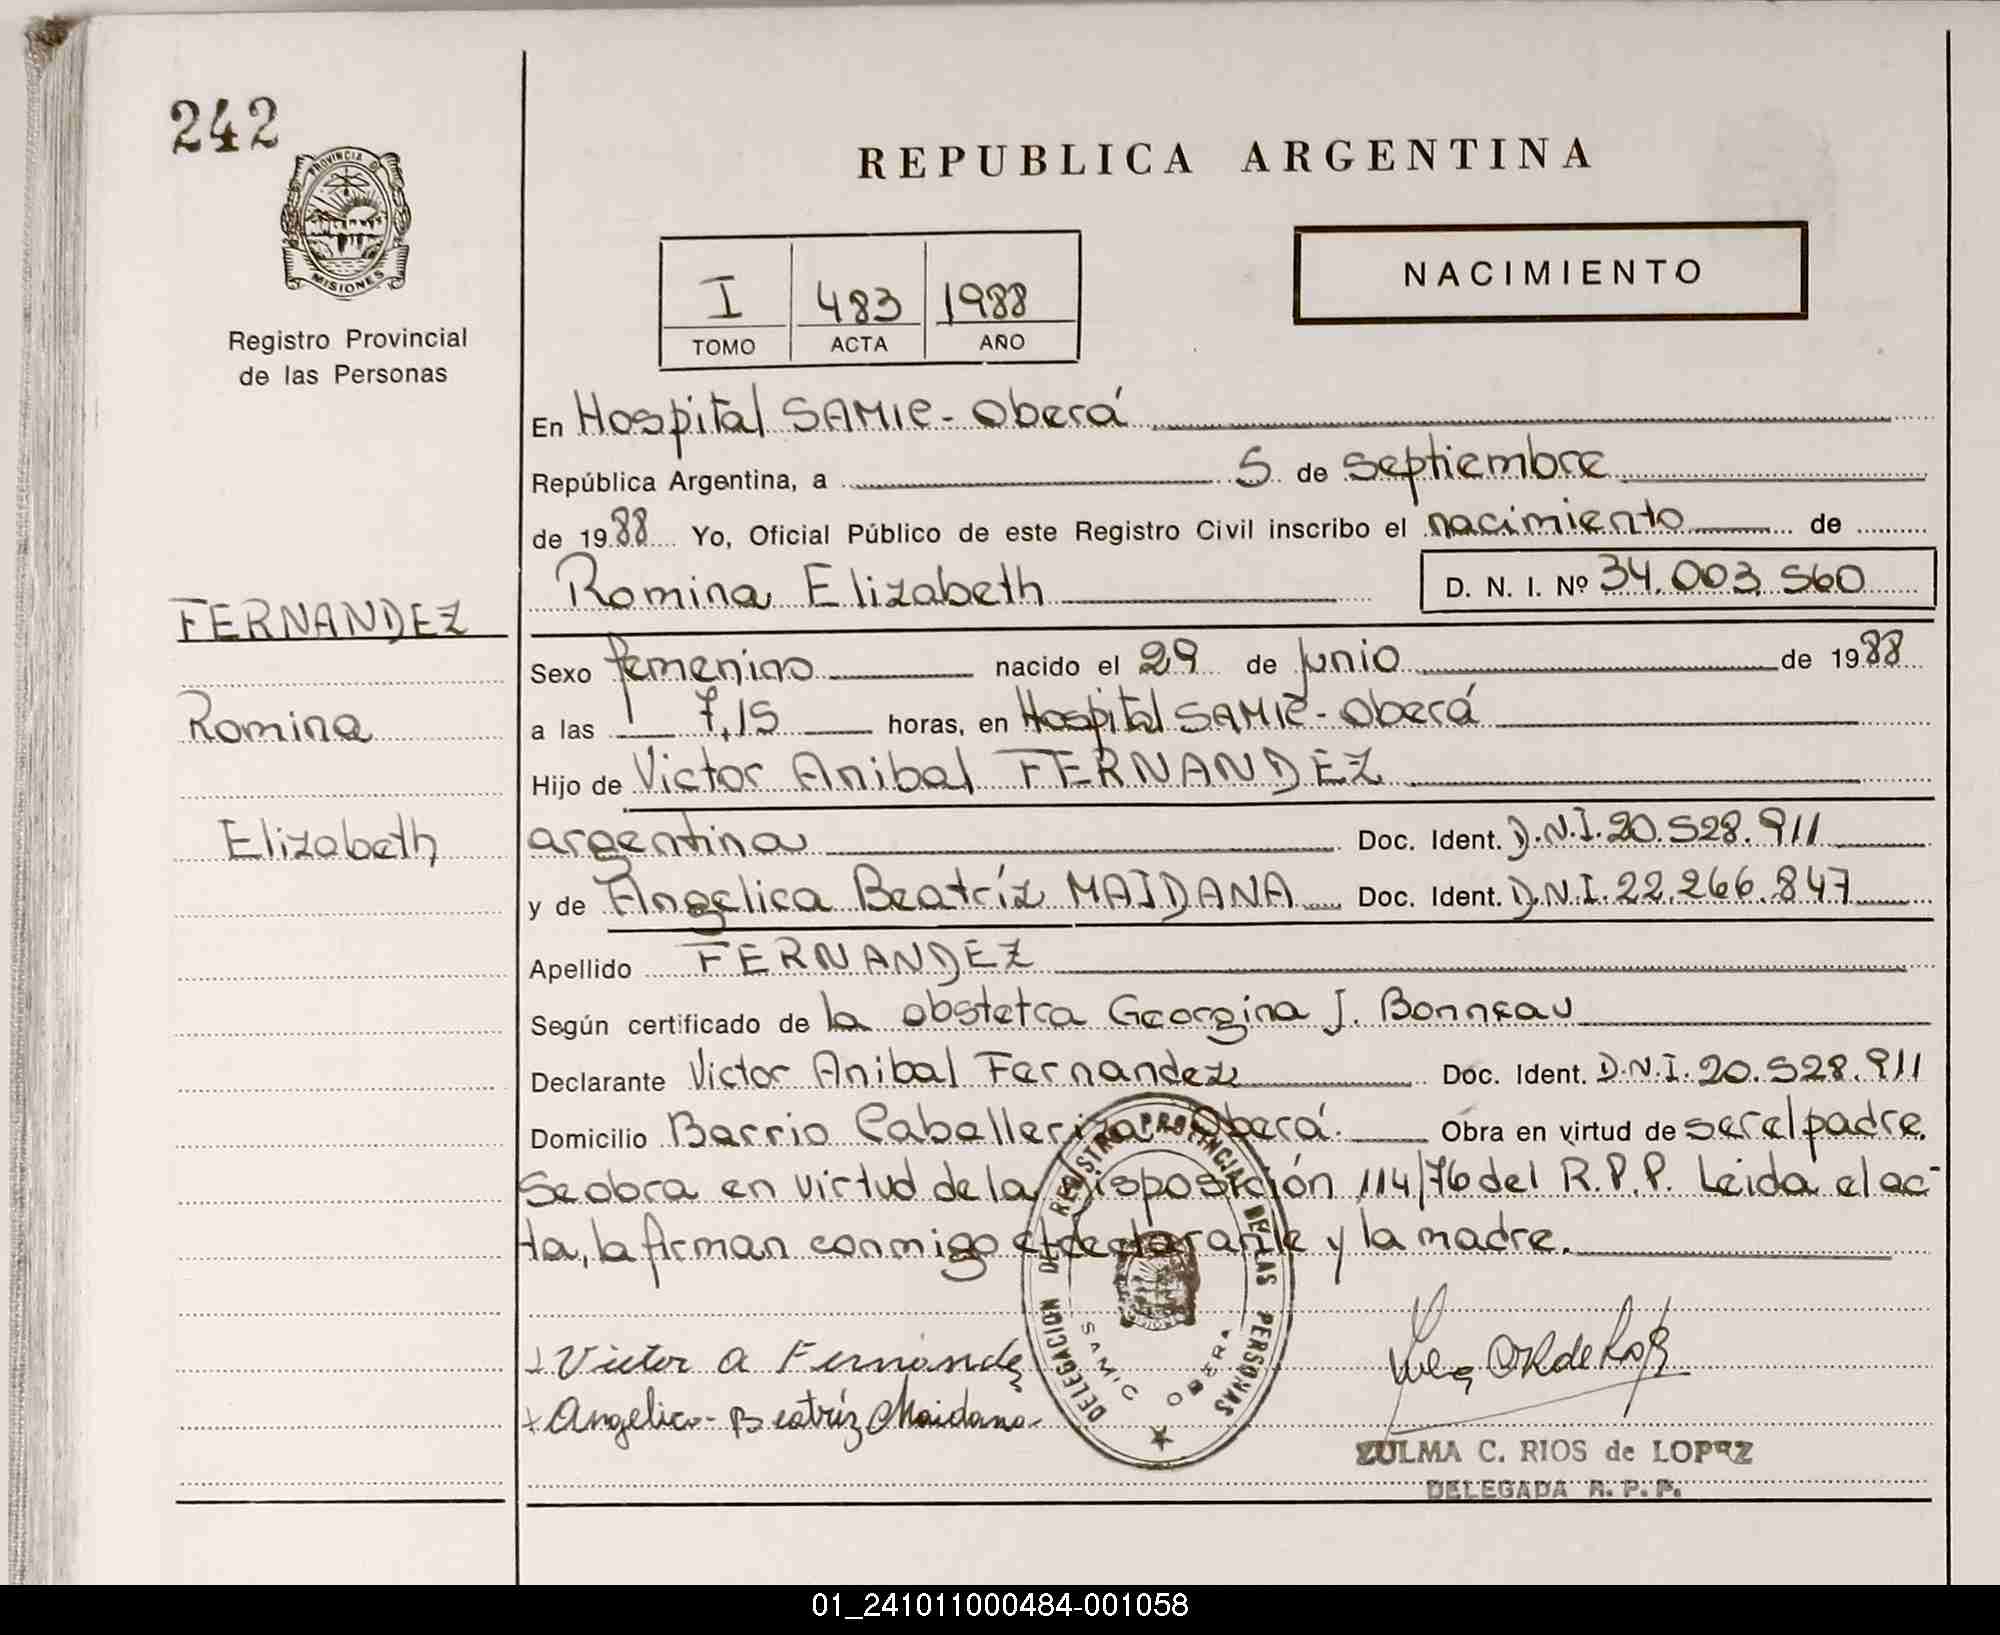 242
PROVINCIA D
MISIONES
Registro Provincial
de las Personas
FERNANDEZ
Romina
Elizabeth
REPUBLICA ARGENTINA
I 483 1988
TOMO ACTA AÑO
NACIMIENTO
En Hospital SAMIC - Oberá
República Argentina, a 5 de septiembre
de 1988 Yo, Oficial Público de este Registro Civil inscribo el nacimiento de
Romina Elizabeth D. N. I. Nº 34.003.560
Sexo femenino nacido el 29 de Junio de 1988
a las 7,15 horas, en Hospital SAMIC - Oberá
Hijo de Victor Anibal FERNANDEZ
argentina Doc. Ident. D.N.I. 20.528.911
y de Angelica Beatríz MAIDANA Doc. Ident. D.N.I. 22.266.847
Apellido FERNANDEZ
Según certificado de la obstetra Georgina J. Bonneau
Declarante Victor Anibal Fernandez Doc. Ident. D.N.I. 20.528.911
Domicilio Barrio Caballeriza Oberá. Obra en virtud de ser el padre.
Se obra en virtud de la Disposición 114/76 del R.P.P. Leida el ac-
ta, la firman conmigo el declarante y la madre.
Victor A Fernández
Angelica - Beatríz Maidana
DELEGACION DE REGISTRO PROVINCIAL DE LAS PERSONAS
SAMIC OBERA
ZULMA C. RIOS de LOPEZ
DELEGADA R. P. P.
01_241011000484-001058